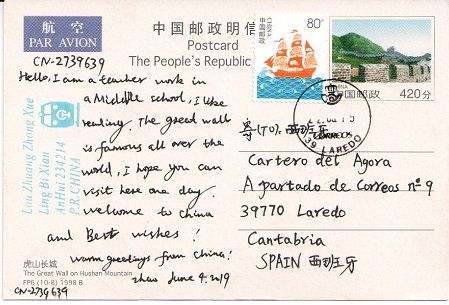 航空
PAR AVION
中国邮政明信
Postcard
The People's Republic
80分
中国邮政
CHINA
中国邮政
CHINA
420分
CN-2739639
Hello, I am a teacher work in
a Middle school, I like
reading. The great wall
is famous all over the
world, I hope you can
visit here one day.
welcome to china
and Best wishes!
warm greetings from china!
zhao June 4. 2019
Lou Zhuang Zhong Xue
Ling Bi Xian
AnHui 234214
P.R.CHINA
CORREOS
39 LAREDO
寄(TO): 西班牙
Cartero del Agora
Apartado de Correos nº 9
39770 Laredo
Cantabria
SPAIN 西班牙
虎山长城
The Great Wall on Hushan Mountain
FP6 (10-8) 1998 B
CN-2739639